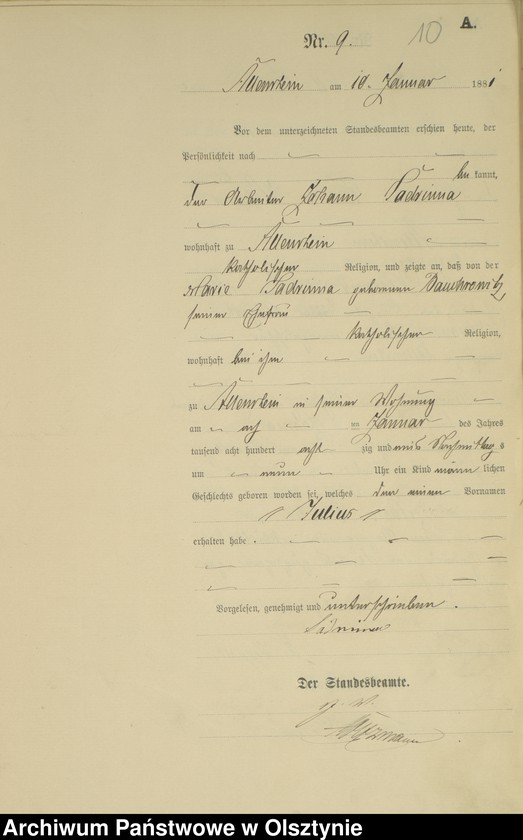 10 A.
Nr. 9.
Allenstein am 10. Januar 1881
Vor dem unterzeichneten Standesbeamten erschien heute, der
Persönlichkeit nach
be kannt,
der Arbeiter Johann
wohnhaft zu Allenstein
katholischer Religion, und zeigte an, daß von der
Marie geborenen
seiner Ehefrau
katholischer Religion,
wohnhaft bei ihm
zu Allenstein in seiner Wohnung
am acht im Januar des Jahres
tausend acht hundert acht zig und eins Nachmittags
um neun Uhr ein Kind männ lichen
Geschlechts geboren worden sei, welches den einen Vornamen
Julius
erhalten habe.
Vorgelesen, genehmigt und unterschrieben.
Der Standesbeamte.
Archiwum Państwowe w Olsztynie